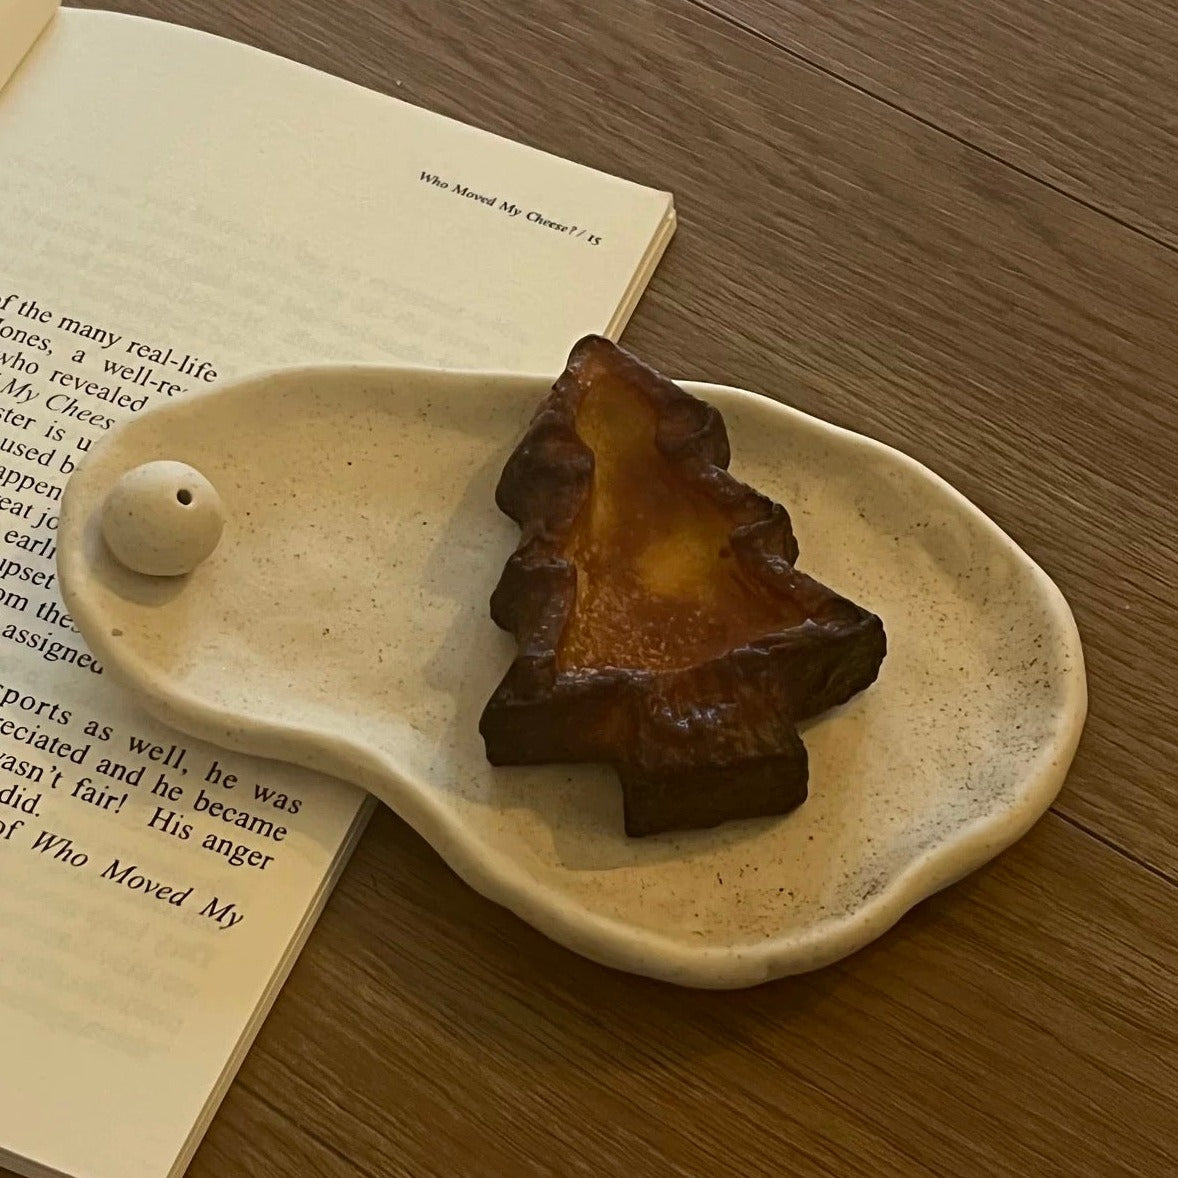 Who Moved My Cheese? / 15
of the many real-life
Jones, a well-re
who revealed
My Chees
ster is u
used b
appen
eat jo
earli
upset
om thes
assigned
sports as well, he was
reciated and he became
wasn't fair! His anger
did.
of Who Moved My